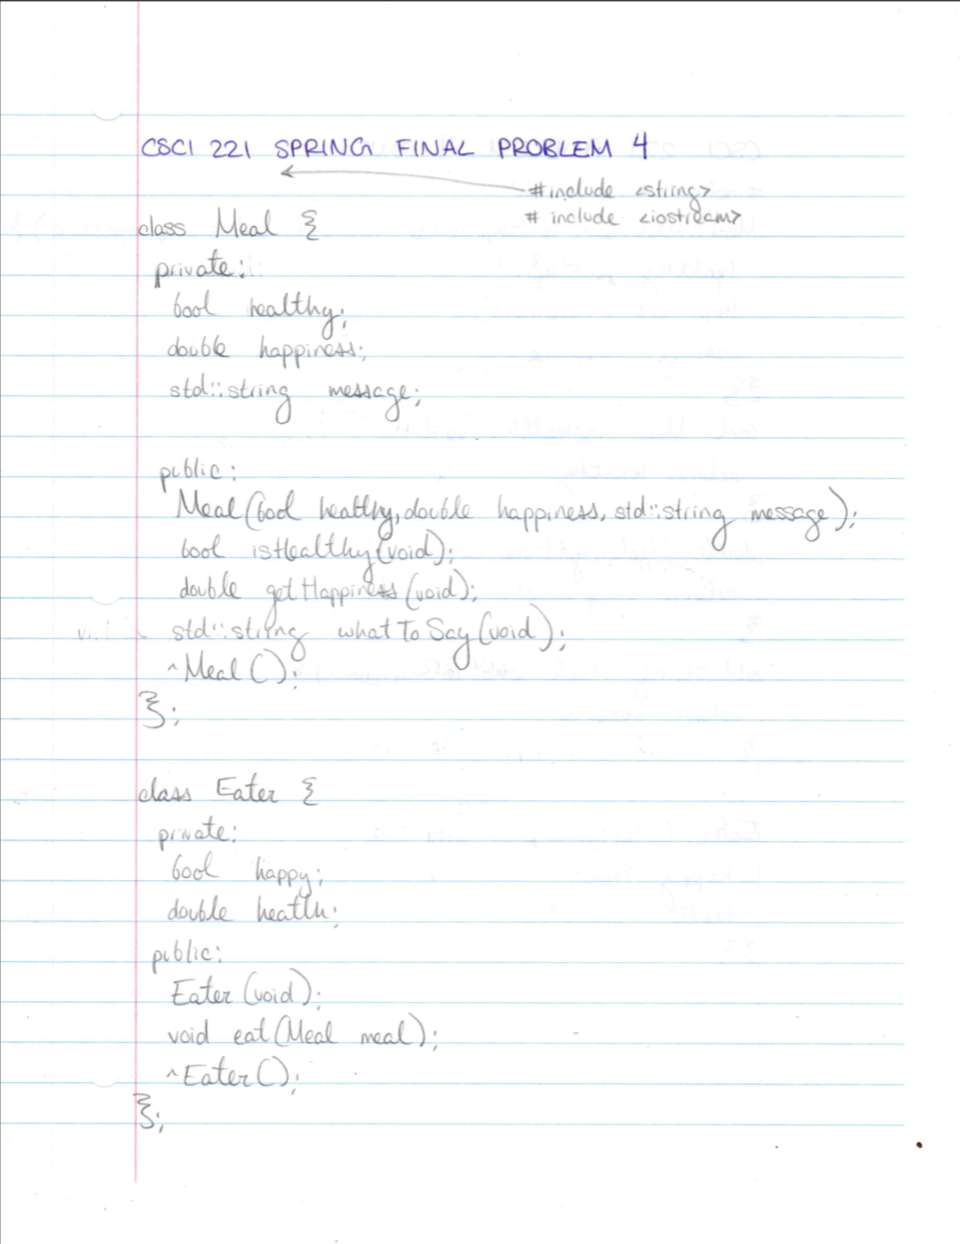 CSCI 221 SPRING FINAL PROBLEM 4
#include <string>
# include <iostream>
class Meal {
private:
bool healthy;
double happiness;
std::string message;
public:
Meal(bool healthy, double happiness, std::string message);
bool isHealthy(void);
double getHappiness(void);
std::string whatToSay(void);
~Meal();
};
class Eater {
private:
bool happy;
double health;
public:
Eater(void);
void eat(Meal meal);
~Eater();
};